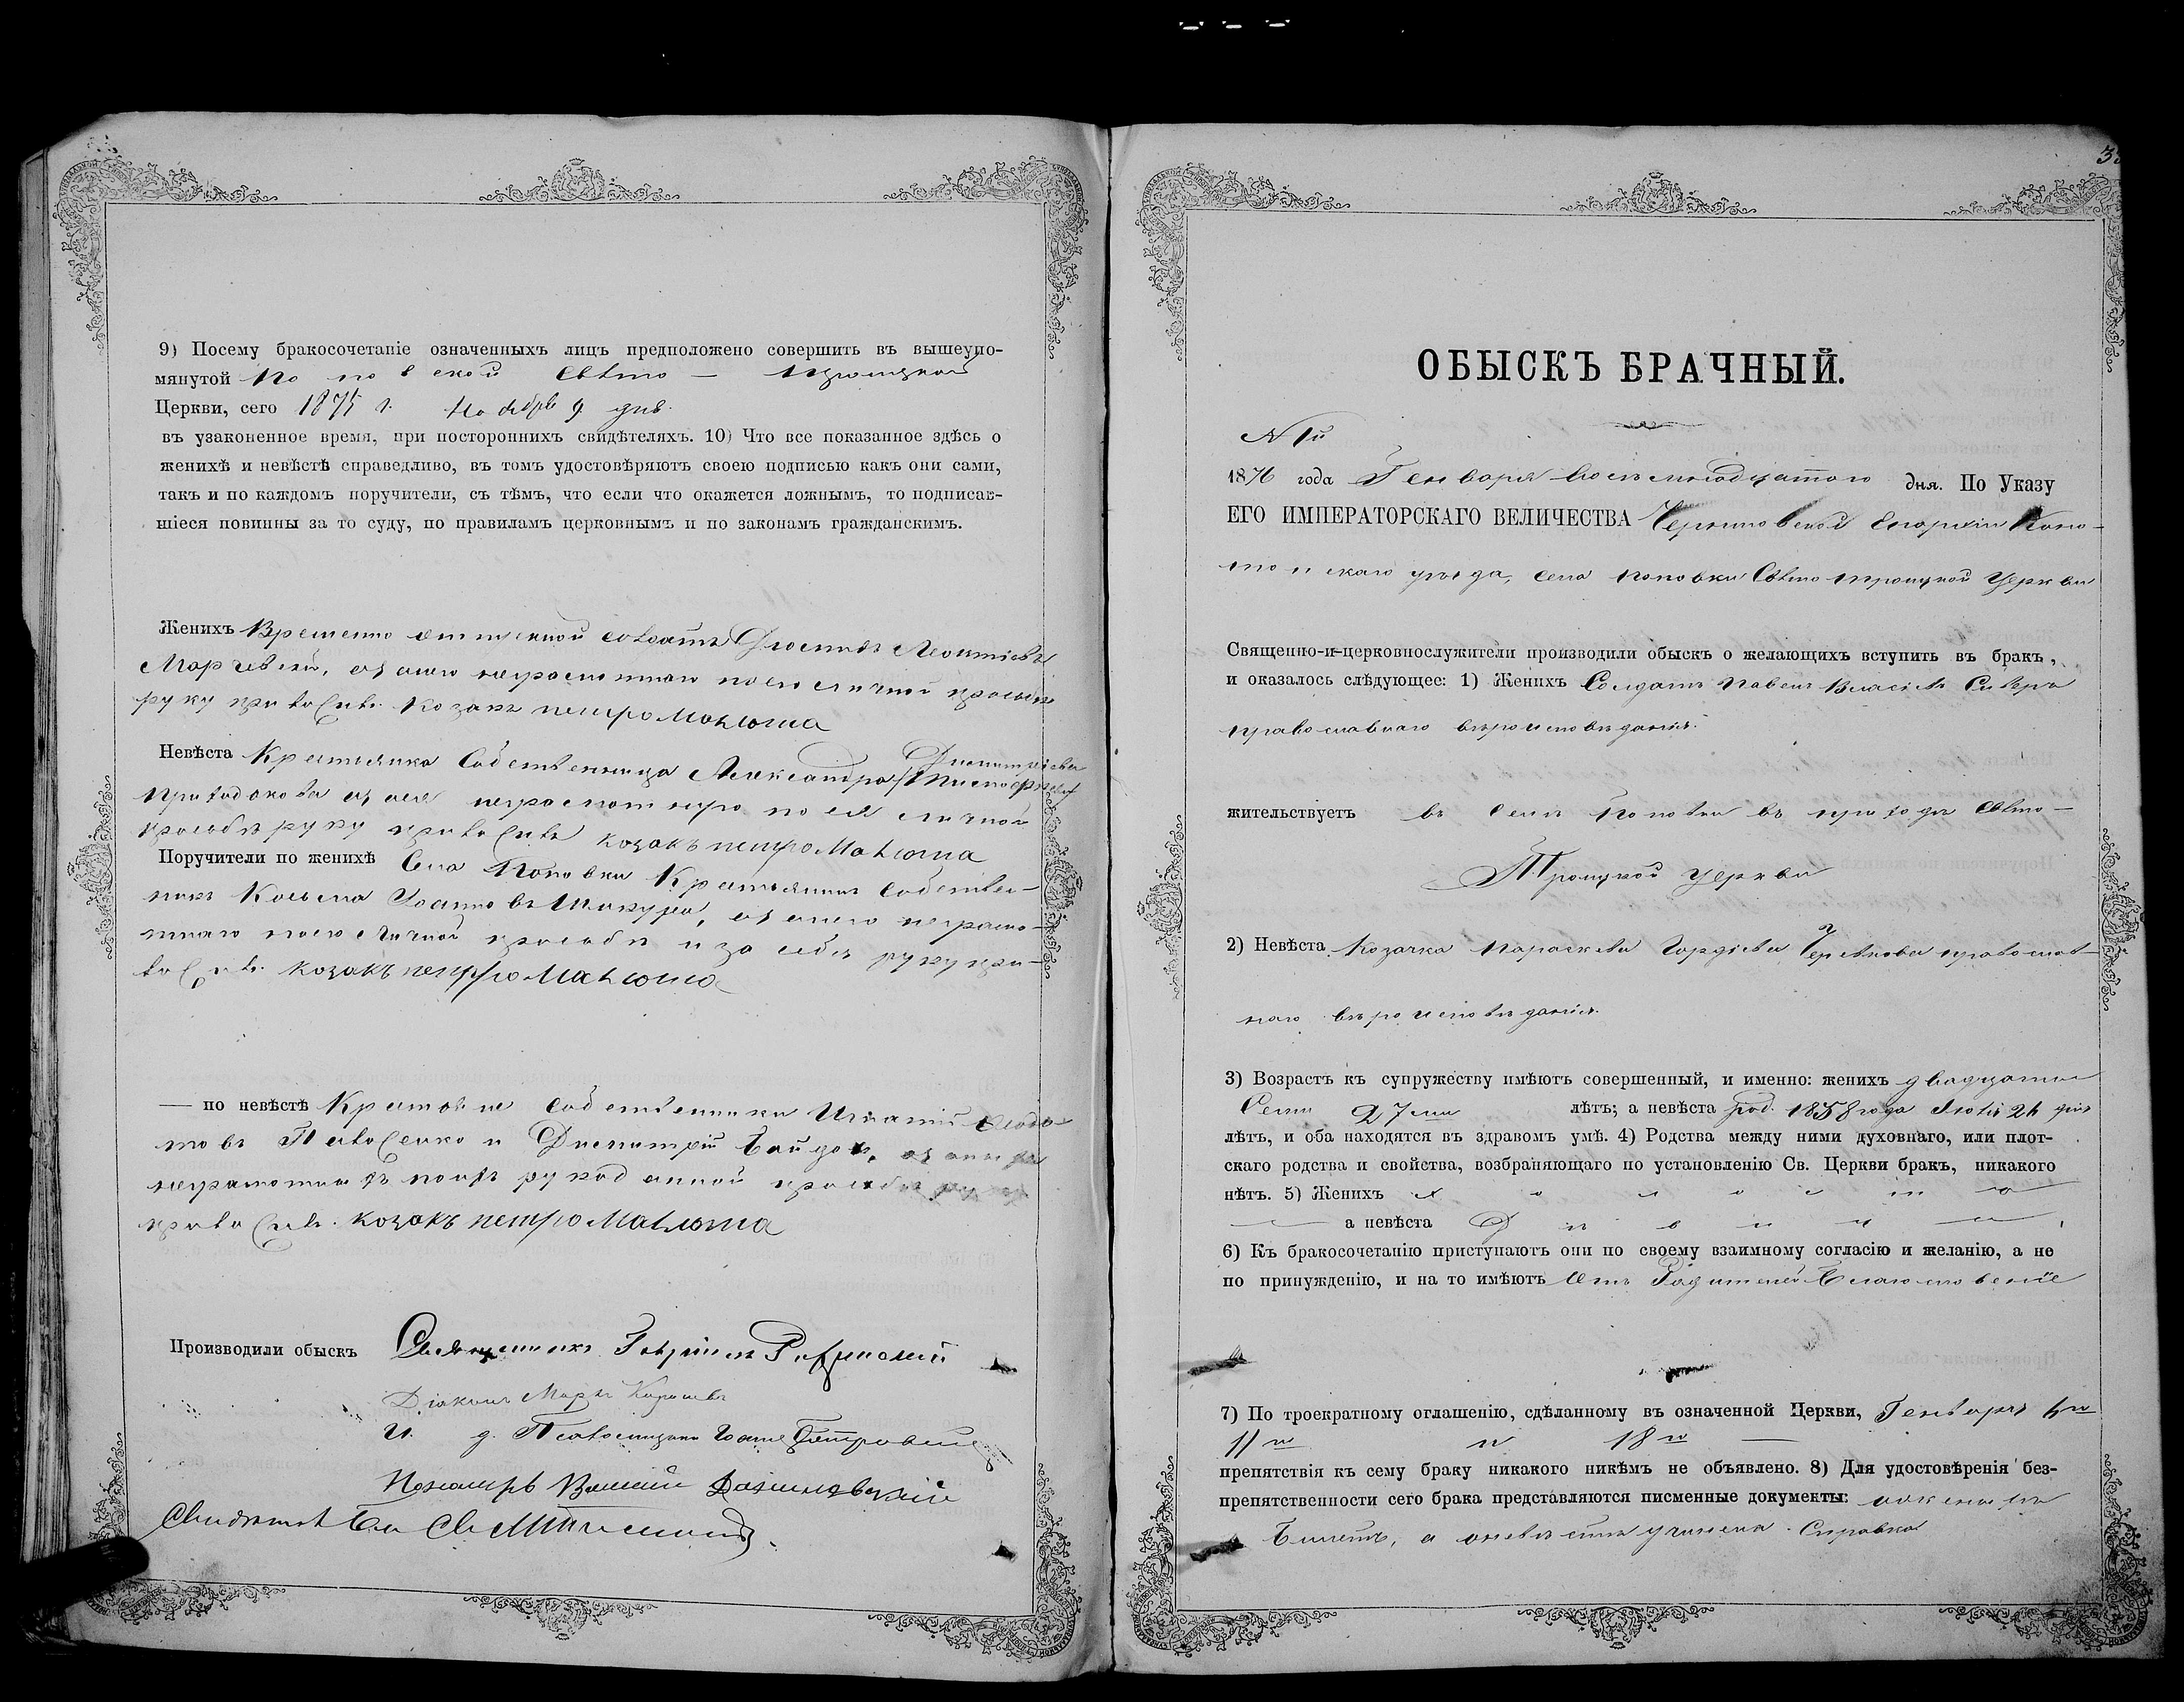 9) Посему бракосочетаніе означенныхъ лицъ предположено совершить въ вышеупо-
мянутой Поповской Свѣто — Троицкой
Церкви, сего 1875 г. Ноября 9 дня.
въ узаконенное время, при постороннихъ свидѣтеляхъ. 10) Что все показанное здѣсь о
женихѣ и невѣстѣ справедливо, въ томъ удостовѣряютъ своею подписью какъ они сами,
такъ и по каждомъ поручители, съ тѣмъ, что если что окажется ложнымъ, то подписав-
шіеся повинны за то суду, по правиламъ церковнымъ и по законамъ гражданскимъ.
Женихъ Временно отпускной Леонтіевъ
неграмотнаго по его личной прозьбѣ
руку приложилъ козакъ петро Матюша
Невѣста Крестьянка Собственница Александра Димитріева
неграмотную по ея личной
прозьбѣ руку приложилъ козакъ петро Матюша
Поручители по женихѣ Села Поповки Крестьянинъ Собствен-
никъ Косьма Іоанновъ неграмо-
тнаго по его личной прозьбѣ и за себя руку при-
ложилъ козакъ петро Матюша
— по невѣстѣ Крестьяне Собственники Игнатій
Павленко и Димитрій
неграмотныхъ прозьбѣ
приложилъ. козакъ петро Матюша
Производили обыскъ Священникъ Гавріилъ
Діаконъ Маркъ
И. д. Псаломщика Іоаннъ Петровскій
Пономарь Василій
№ 1й
3
ОБЫСКЪ БРАЧНЫЙ.
1876 года Генваря восемнадцатого дня. По Указу
ЕГО ИМПЕРАТОРСКАГО ВЕЛИЧЕСТВА Черниговской Епархіи Коно-
топскаго уѣзда, села Поповки Свѣто Троицкой Церкви
Священно-и-церковнослужители производили обыскъ о желающихъ вступить въ бракъ,
и оказалось слѣдующее: 1) Женихъ Солдатъ Павелъ Власіевъ
православнаго вѣроисповѣданія.
жительствуетъ въ селѣ Поповки въ приходѣ Свѣто —
Троицкой Церкви
2) Невѣста Козачка Параскева Гордіева православ-
наго вѣроисповѣданія.
3) Возрастъ къ супружеству имѣютъ совершенный, и именно: женихъ двадцати
Семи 27ми лѣтъ; а невѣста род. 1858 года Іюля 24 дня
лѣтъ, и оба находятся въ здравомъ умѣ. 4) Родства между ними духовнаго, или плот-
скаго родства и свойства, возбраняющаго по установленію Св. Церкви бракъ, никакого
нѣтъ. 5) Женихъ холостъ
— а невѣста Дѣвица,
6) Къ бракосочетанію приступаютъ они по своему взаимному согласію и желанію, а не
по принужденію, и на то имѣютъ отъ Родителей Благословеніе
7) По троекратному оглашенію, сдѣланному въ означенной Церкви, Генваря 6го
11го и 18го —
препятствія къ сему браку никакого никѣмъ не объявлено. 8) Для удостовѣренія без-
препятственности сего брака представляются писменные документы: о женихѣ
Билетъ, а о невѣстѣ учинена Справка